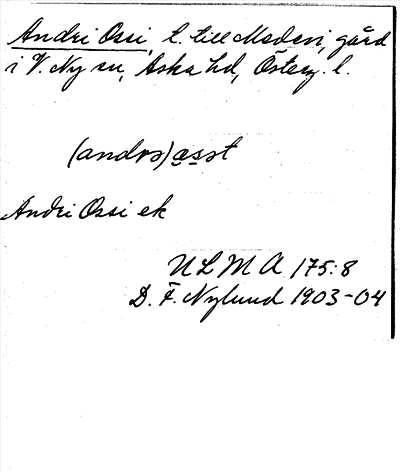 Andri Ossi, t. till Medevi, gård
i V. Ny sn, Aska hd, Österg. l.
(andrə)a̲s̲ət
Andri Ossi ek
ULMA 175:8
D. F. Nylund 1903-04